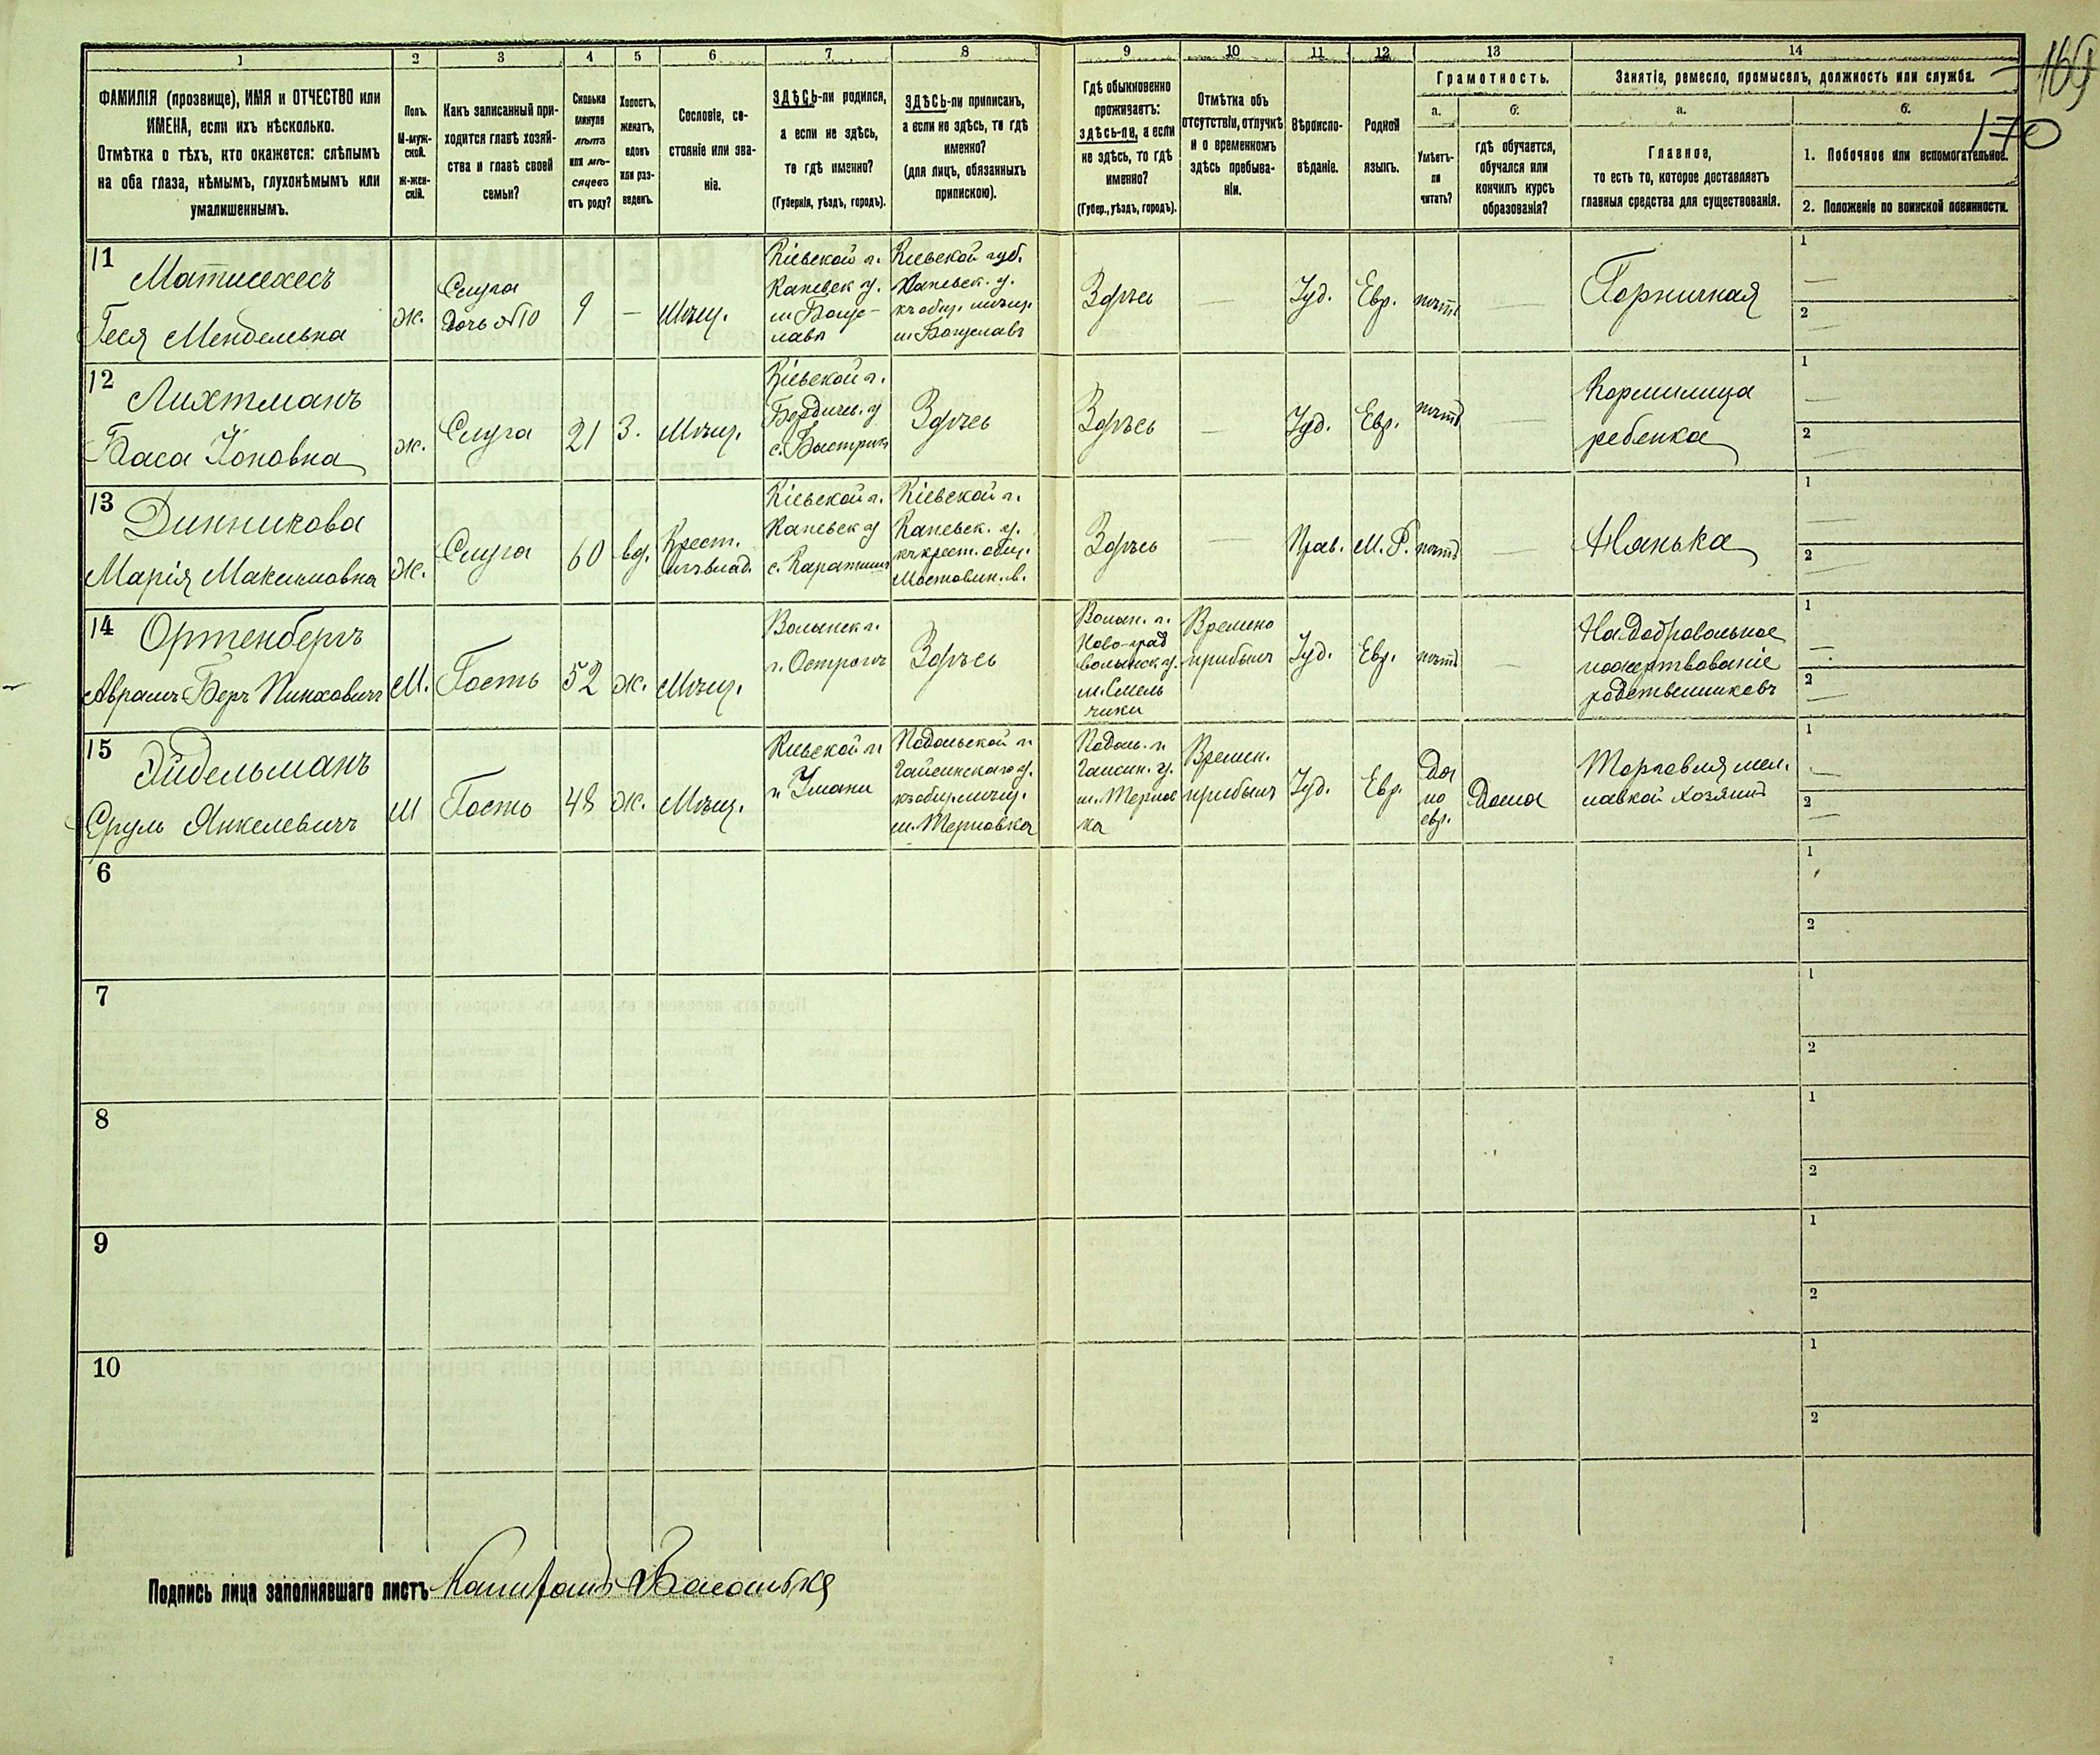 169
170
1
2
3
4
5
6
7
8
9
10
11
12
13
14
ФАМИЛІЯ (прозвище), ИМЯ и ОТЧЕСТВО или
ИМЕНА, если ихъ нѣсколько.
Отмѣтка о тѣхъ, кто окажется: слѣпымъ
на оба глаза, нѣмымъ, глухонѣмымъ или
умалишеннымъ.
Полъ.
М-муж-
ской.
ж-жен-
скій.
Какъ записанный при-
ходится главѣ хозяй-
ства и главѣ своей
семьи?
Сколько
минуло
лѣтъ
или мѣ-
сяцевъ
отъ роду?
Холостъ,
женатъ,
вдовъ
или раз-
веденъ.
Сословіе, со-
стояніе или зва-
ніе.
ЗДѢСЬ-ли родился,
а если не здѣсь,
то гдѣ именно?
(Губернія, уѣздъ, городъ).
ЗДѢСЬ-ли приписанъ,
а если не здѣсь, то гдѣ
именно?
(для лицъ, обязанныхъ
припискою).
Гдѣ обыкновенно
проживаетъ:
здѣсь-ли, а если
не здѣсь, то гдѣ
именно?
(Губер., уѣздъ, городъ).
Отмѣтка объ
отсутствіи, отлучкѣ
и о временномъ
здѣсь пребыва-
ніи.
Вѣроиспо-
вѣданіе.
Родной
языкъ.
Грамотность.
а.
б.
Умѣетъ-
ли
читать?
гдѣ обучается,
обучался или
кончилъ курсъ
образованія?
Занятіе, ремесло, промыселъ, должность или служба.
а.
б.
Главное,
то есть то, которое доставляетъ
главныя средства для существованія.
1. Побочное или вспомогательное.
2. Положеніе по воинской повинности.
11
Матисехесъ
Геся Мендельвна
ж.
Слуга
дочь №10
9
—
Мѣщ.
Кіевской г.
Каневск у.
м Богус-
лавъ
Кіевской губ.
Каневск. у.
къ общ. мѣщ.
м. Богуславъ
Здѣсь
—
Іуд.
Евр.
нѣтъ
—
Горничная
1
—
2
—
12
Лихтманъ
Баса Іоновна
ж.
Слуга
21
З.
Мѣщ.
Кіевской г.
Бердичев. у
с. Быстрикъ
Здѣсь
Здѣсь
—
Іуд.
Евр.
нѣтъ
Кормилица
ребенка
1
—
2
—
13
Динникова
Марія Максимовна
Ж.
Слуга
60
вд.
Крест.
изъ влад.
Кіевской г.
Каневск у
с. Каратишъ
Кіевской г.
Каневск. у.
къ крест. общ.
Здѣсь
—
Прав.
М. Р.
нѣтъ
—
Нянька
1
—
2
—
14
Ортенбергъ
Аврамъ-Беръ Пинховичъ
М.
Гость
52
ж.
Мѣщ.
Волынск г.
г. Острогъ
Здѣсь
Волын. г.
Ново-град
волынск у.
м. Смель
чики
Времено
прибылъ
Іуд.
Евр.
нѣтъ
—
На добровольное
пожертвованіе
родственниковъ
1
—
2
—
15
Эйдельманъ
Сруль Янкелевичъ
М
Гость
48
ж.
Мѣщ.
Кіевской г.
г Умани
Подольской г.
Гайсинскаго у.
къ общ. мѣщ.
м. Терновка
Подол. г.
Гайсин. у.
м. Тернов
ка
Времен.
прибылъ
Іуд.
Евр.
Да
по
евр.
Дома
Торговля мел.
лавкой хозяинъ
1
—
2
—
6
1
2
7
1
2
8
1
2
9
1
2
10
1
2
Подпись лица заполнявшаго листъ